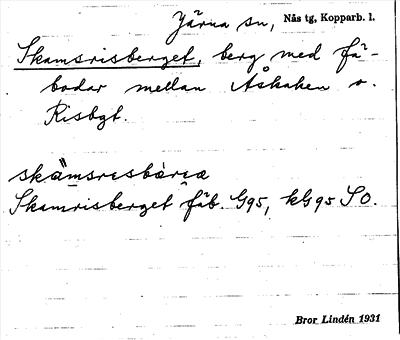 Järna sn, Nås tg, Kopparb. l.
Skamsrisberget, berg med fä-
bodar mellan Åskaken o.
Risbgt.
skämsrısbärıa
Skamrisberget fäb. G95, kG95 SO.
Bror Lindén 1931